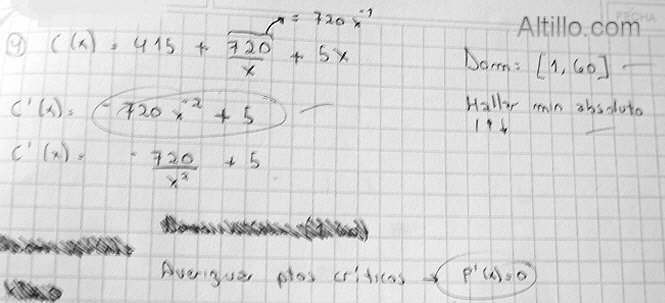 = 720 x⁻¹
Altillo.com
FECHA
④ C(x) = 415 + 720/x + 5x Dom = [1, 60]
C'(x) = - 720 x⁻² + 5 Hallar min absoluto
C'(x) = - 720/x² + 5
Averiguar ptos críticos → f'(x) = 0